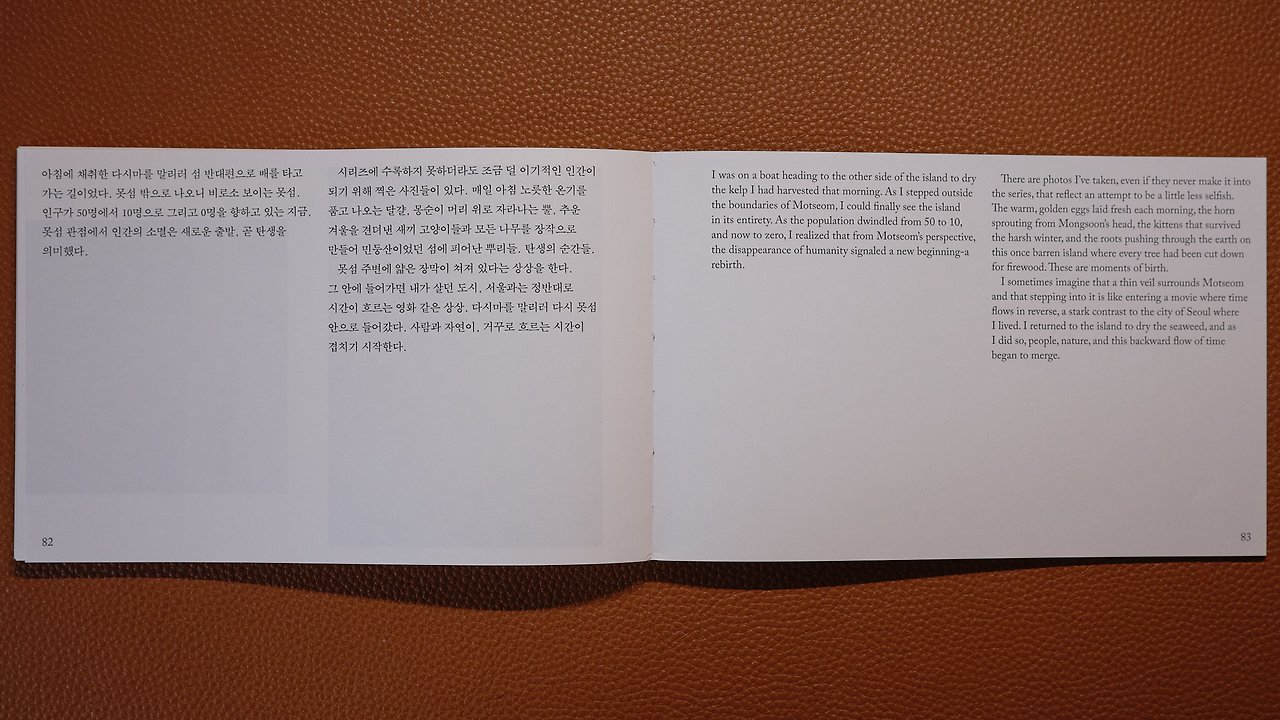 아침에 채취한 다시마를 말리러 섬 반대편으로 배를 타고
가는 길이었다. 못섬 밖으로 나오니 비로소 보이는 못섬.
인구가 50명에서 10명으로 그리고 0명을 향하고 있는 지금,
못섬 관점에서 인간의 소멸은 새로운 출발, 곧 탄생을
의미했다.
시리즈에 수록하지 못하더라도 조금 덜 이기적인 인간이
되기 위해 찍은 사진들이 있다. 매일 아침 노릇한 온기를
품고 나오는 달걀, 몽순이 머리 위로 자라나는 뿔, 추운
겨울을 견뎌낸 새끼 고양이들과 모든 나무를 장작으로
만들어 민둥산이었던 섬에 피어난 뿌리들. 탄생의 순간들.
못섬 주변에 얇은 장막이 쳐져 있다는 상상을 한다.
그 안에 들어가면 내가 살던 도시, 서울과는 정반대로
시간이 흐르는 영화 같은 상상. 다시마를 말리러 다시 못섬
안으로 들어갔다. 사람과 자연이, 거꾸로 흐르는 시간이
겹치기 시작한다.
82
I was on a boat heading to the other side of the island to dry
the kelp I had harvested that morning. As I stepped outside
the boundaries of Motseom, I could finally see the island
in its entirety. As the population dwindled from 50 to 10,
and now to zero, I realized that from Motseom's perspective,
the disappearance of humanity signaled a new beginning–a
rebirth.
There are photos I've taken, even if they never make it into
the series, that reflect an attempt to be a little less selfish.
The warm, golden eggs laid fresh each morning, the horn
sprouting from Mongsoon's head, the kittens that survived
the harsh winter, and the roots pushing through the earth on
this once barren island where every tree had been cut down
for firewood. These are moments of birth.
I sometimes imagine that a thin veil surrounds Motseom
and that stepping into it is like entering a movie where time
flows in reverse, a stark contrast to the city of Seoul where
I lived. I returned to the island to dry the seaweed, and as
I did so, people, nature, and this backward flow of time
began to merge.
83